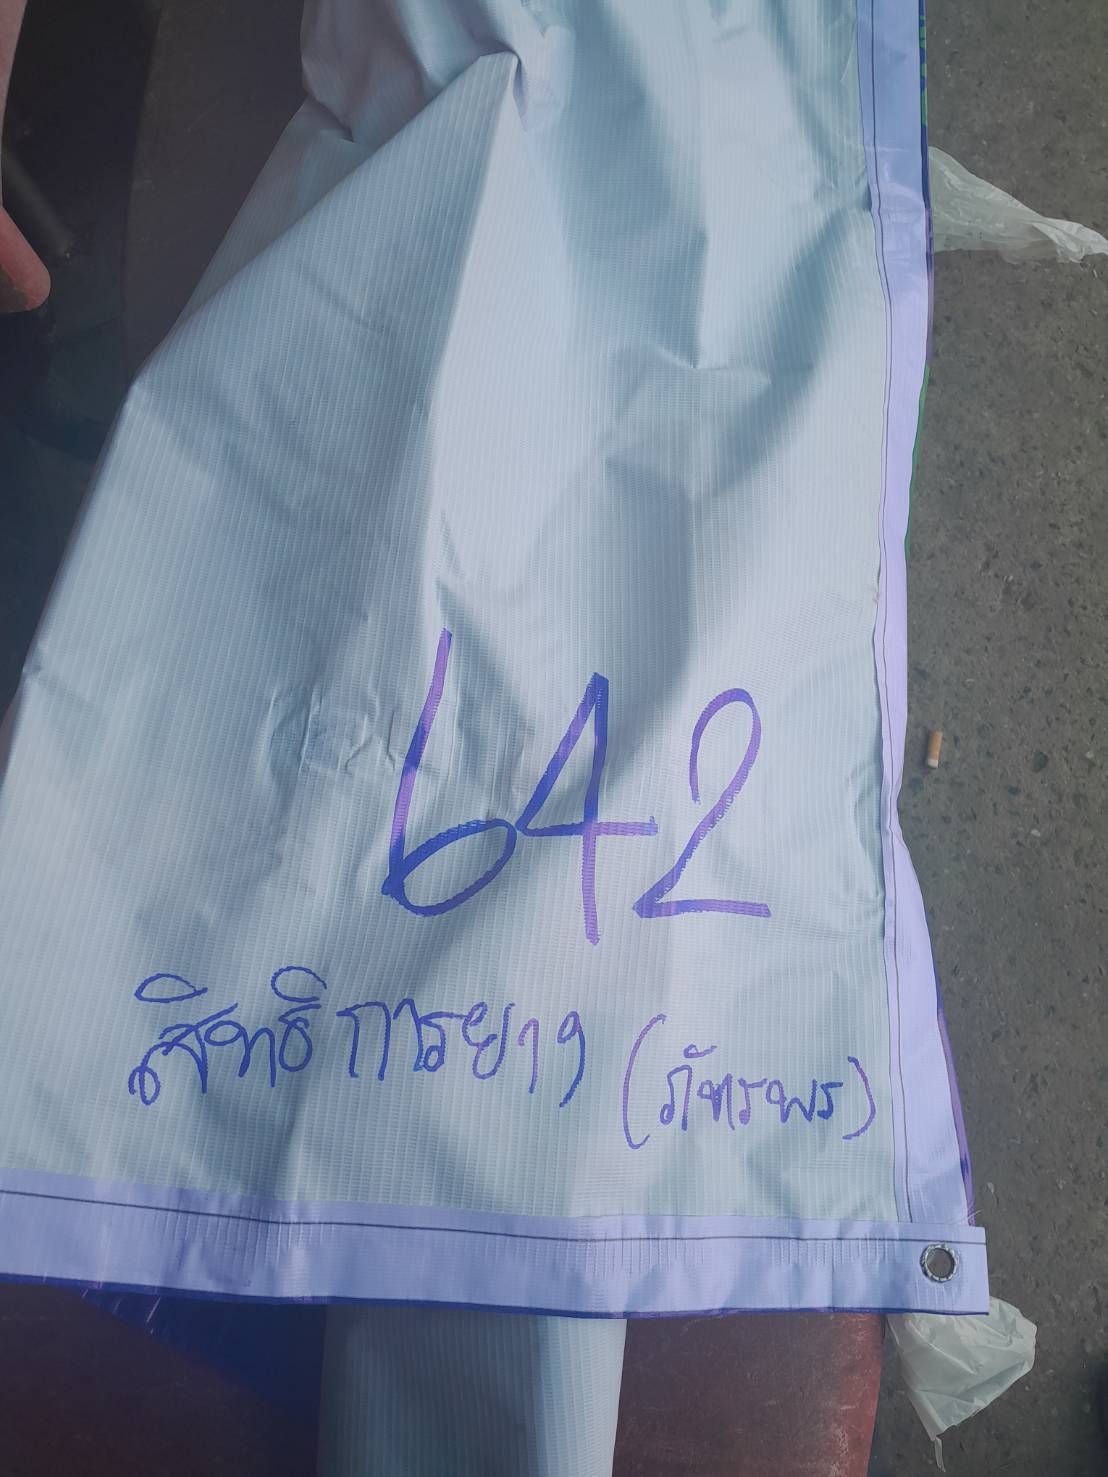 642
สิทธิการยาง (ภัทรพร)